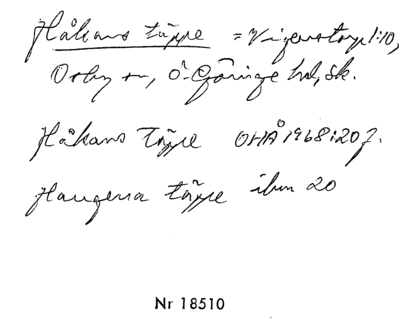 Håkans täppe = Vigenstorp 1:10,
Örby sn, Ö. Göinge hd, Sk.
Håkans täppe OHÅ 1968:20 f.
Haugena täppe ibm 20
Nr 18510